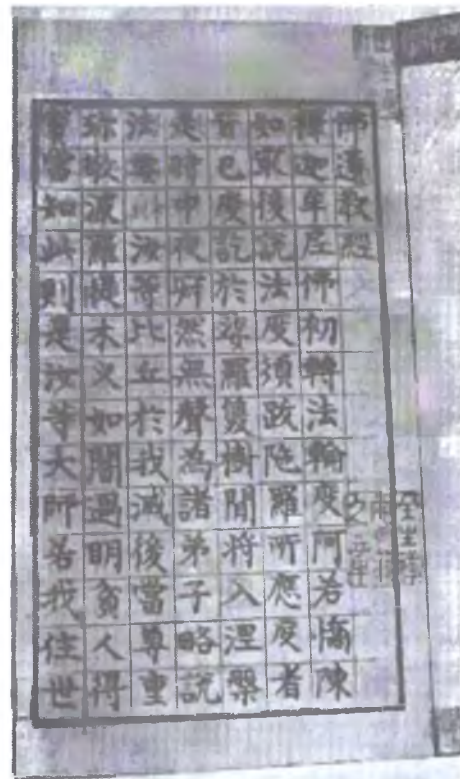 佛遺教經
釋迦牟尼佛初轉法輪度阿若憍陳
如冣後說法度須跋陀羅所應度者
皆已度訖於娑羅雙樹間將入涅槃
是時中夜寂然無聲為諸弟子略說
法要汝等比丘於我滅後當尊重
珍敬波羅提木叉如闇遇明貧人得
寶當知此則是汝等大師若我住世